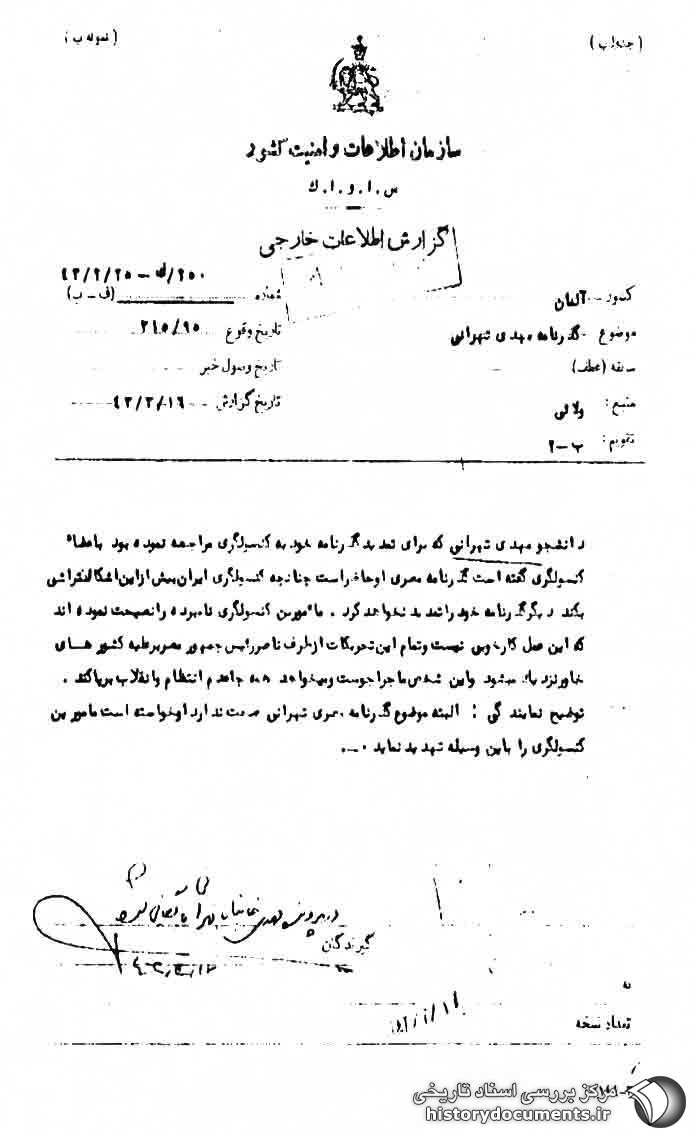 ( جنداب )
( نمونه ب )
سازمان اطلاعات و امنیت کشور
س . ا . و . ا . ك
گزارش اطلاعات خارجی
کشور آلمان
شماره (ف - ب)
موضوع گذرنامه مهدی تهرانی
تاریخ وقوع
سابقه (عطف)
تاریخ وصول خبر
منبع :
تاریخ گزارش
تقویم : ب - ۲
دانشجو مهدی تهرانی که برای تمدید گذرنامه خود به کنسولگری مراجعه نموده بود باعضاء
کنسولگری گفته است گذرنامه مصری او حاضر است چنانچه کنسولگری ایران بیش از این اشکالتراشی
بکند دیگر گذرنامه خود را تمدید نخواهد کرد . مامورین کنسولگری نامبرده را نصیحت نموده اند
که این عمل کار خوبی نیست و تمام این تحریکات از طرف ناصر رئیس جمهور مصر بر علیه کشور های
خاور نزدیک میشود و این شخص ماجراجوست و میخواهد همه جا عدم انتظام و انقلاب برپا کند .
توضیح نمایندگی : البته موضوع گذرنامه مصری تهرانی صحت ندارد او خواسته است مامورین
کنسولگری را باین وسیله تهدید نماید .
گیرندگان
به
تعداد نسخه
مرکز بررسی اسناد تاریخی
historydocuments.ir